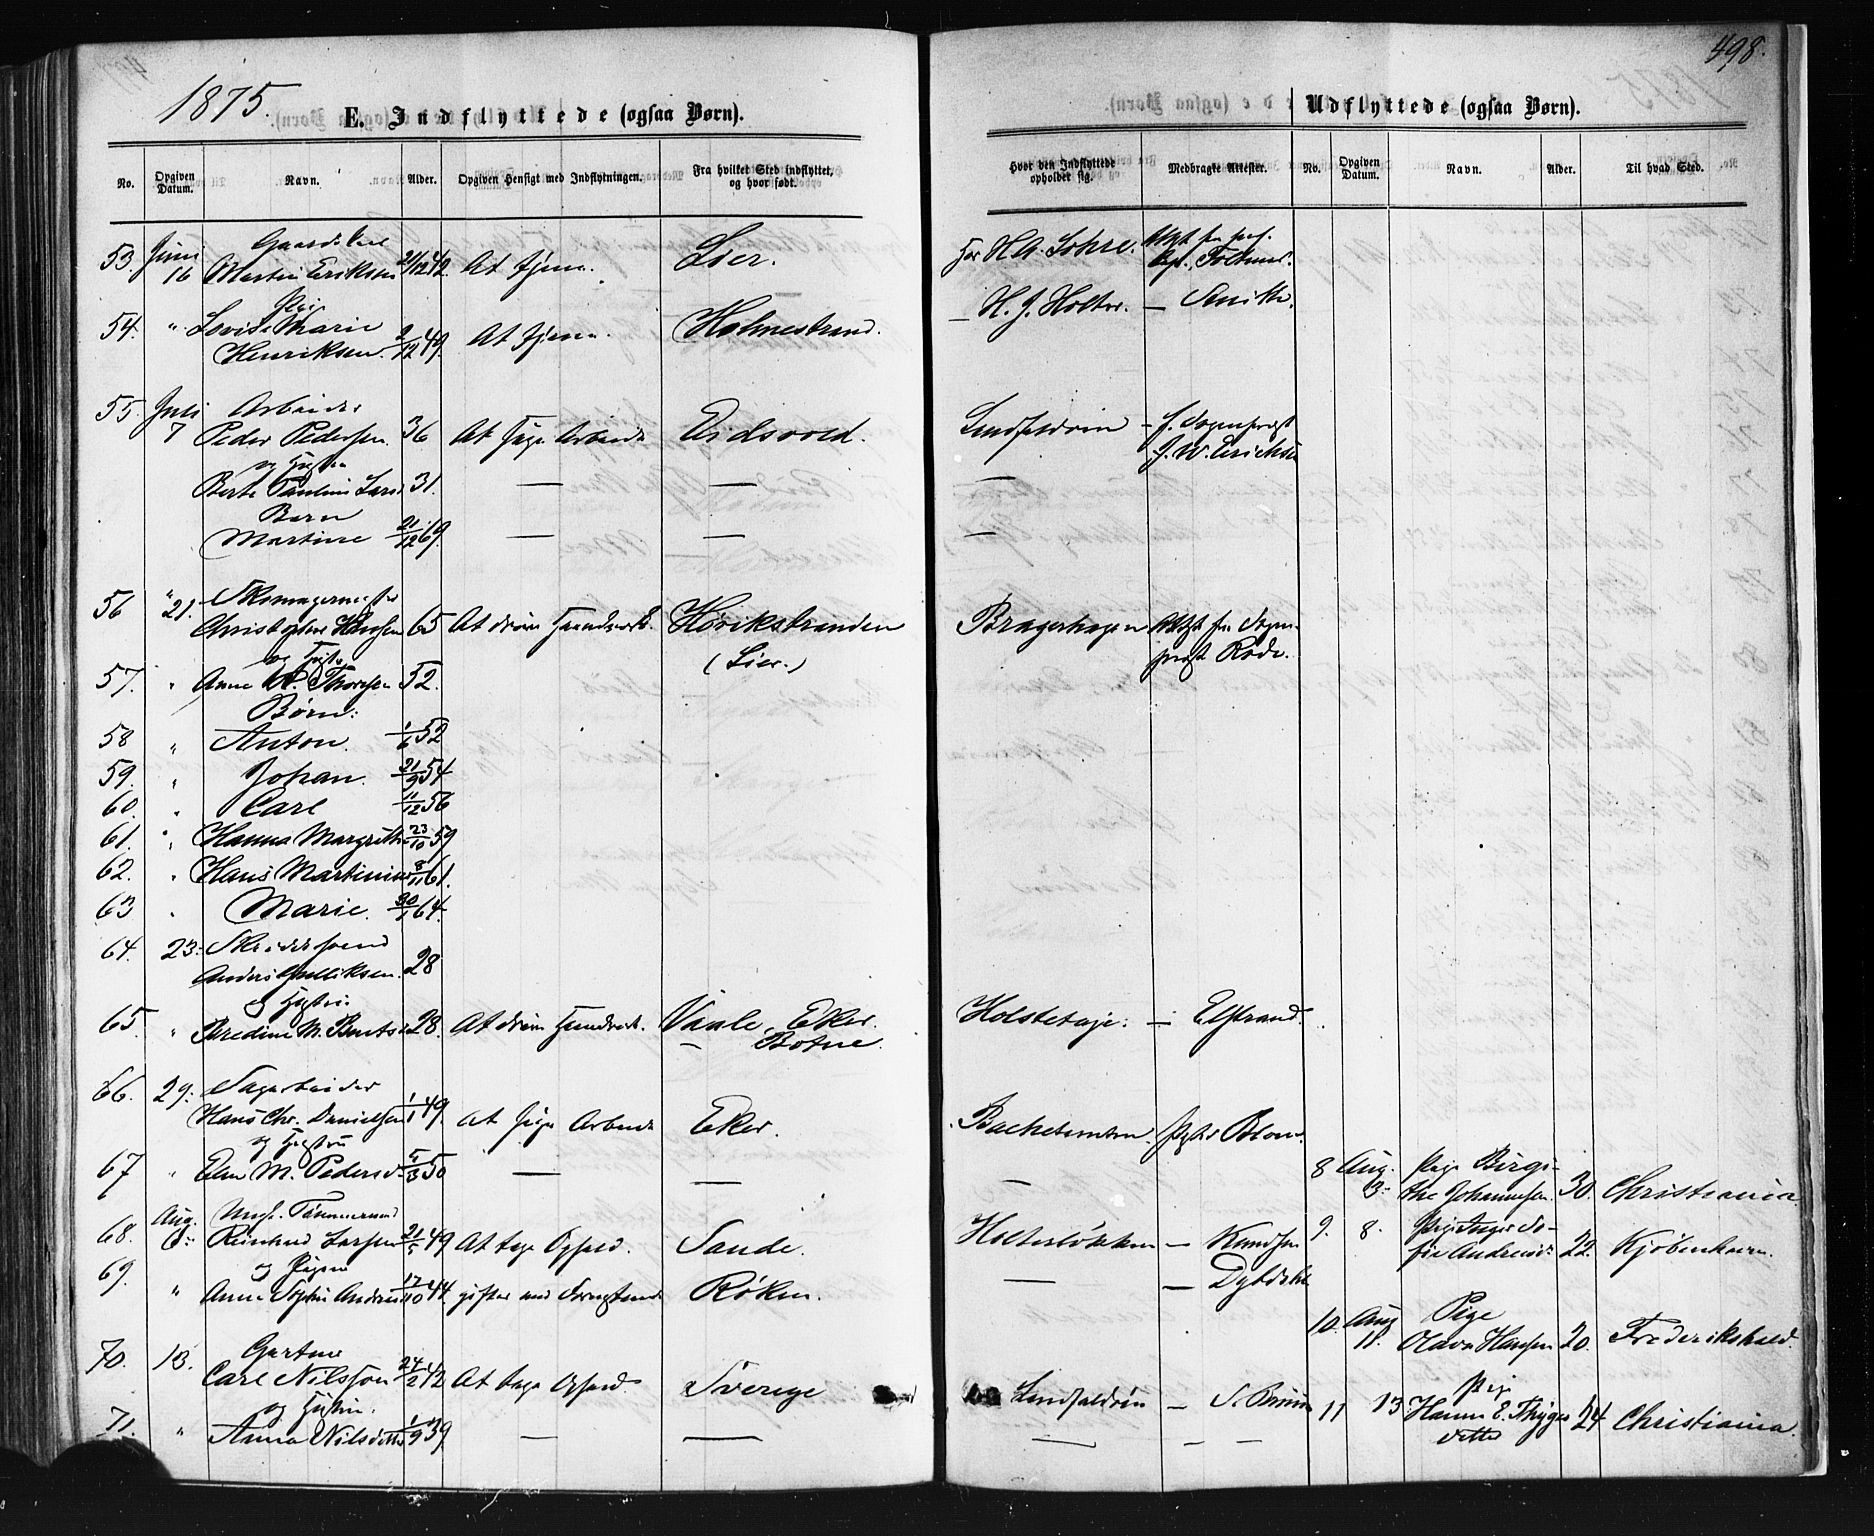 1875.
E. Indflyttede (ogsaa Børn).
No.
Opgiven Datum.
Navn.
Alder.
Opgiven Hensigt med Indflytningen.
Fra hvilket Sted indflyttet, og hvor født.
53. Juni Gaardskarl
16 Martin Eriksen 21/12 42 At tjene. Lier.
54. " Pige
Lovise Marie
Henriksen. 2/12 49. At tjene. Holmestrand.
55. Juli Arbeider
7 Peder Pedersen. 36 At søge Arbeide Eidsvold.
og Hustru
Berte Pauline Lars 31. — —
Barn
Martine 21/12 69. — —
56 " 21. Skomagermester
Christopher Hansen 65 At drive Haandverk. Hørikstranden
og Hustru (Lier.)
57. " Anne M. Thorsen 52.
Børn:
58 " Anton. 1/6 52
59. " Johan. 21/9 54
60. " Carl 11/12 56
61. " Hanna Margrethe 23/10 59
62. " Hans Martinius 8/11 61.
63 " Marie. 30/1 64.
64. 23. Skrædersvend
Anders Gulliksen. 28
og Hustru
65. " Bredine M. Bernts 28. At drive Haandverk. Vaale, Eker.
— Botne.
66. 29. Sagarbeider
Hans Chr. Danielsen 1/1 49. At søge Arbeide Eker.
og Hustru
67 " Elen M. Peders 5/3 50 — —
68. Aug. Ungk. Tømmermand
6. Reinhard Larsen 21/5 49 At tage Ophold. Sande.
69. og Pigen
" Anne Sophie Andrea 17/10 44. gifter med Foregaaende Røken.
70. 13. Gartner
Carl Nilsson 24/2 42 At tage Ophold. Sverige
og Hustru.
71. " Anna Nilsdatter 1/9 39 — —
498.
Udflyttede (ogsaa Børn).
Hvor den Indflyttede opholder sig.
Medbragte Attester.
No.
Opgiven Datum.
Navn.
Alder.
Til hvad Sted.
hos H. A. Sohre. Attst fra pers.
Cap.
— H. J. Holter. — Smith.
Landfaldøien — f. Sogneprest
J. W. Erichsen
—
—
Bragerhagen Attst fra Sogne-
prest Rode.
Holstetaje. — Elstrand.
Bachetomten. Blom.
— 8 Aug. Pige Birgi-
3. the Johannesen. 30. Christiania
Holterløkken — Knudsen 9. 8. Pige
Andreas 22. Kjøbenhavn.
— — Dybdahl
10. Aug. Pige
11. Olava Hansen 20. Frederikshald.
Landfaldøien — S. Bruun 11 13 Pige
Hanne E. Thyges 24 Christiania.
datter
— — —